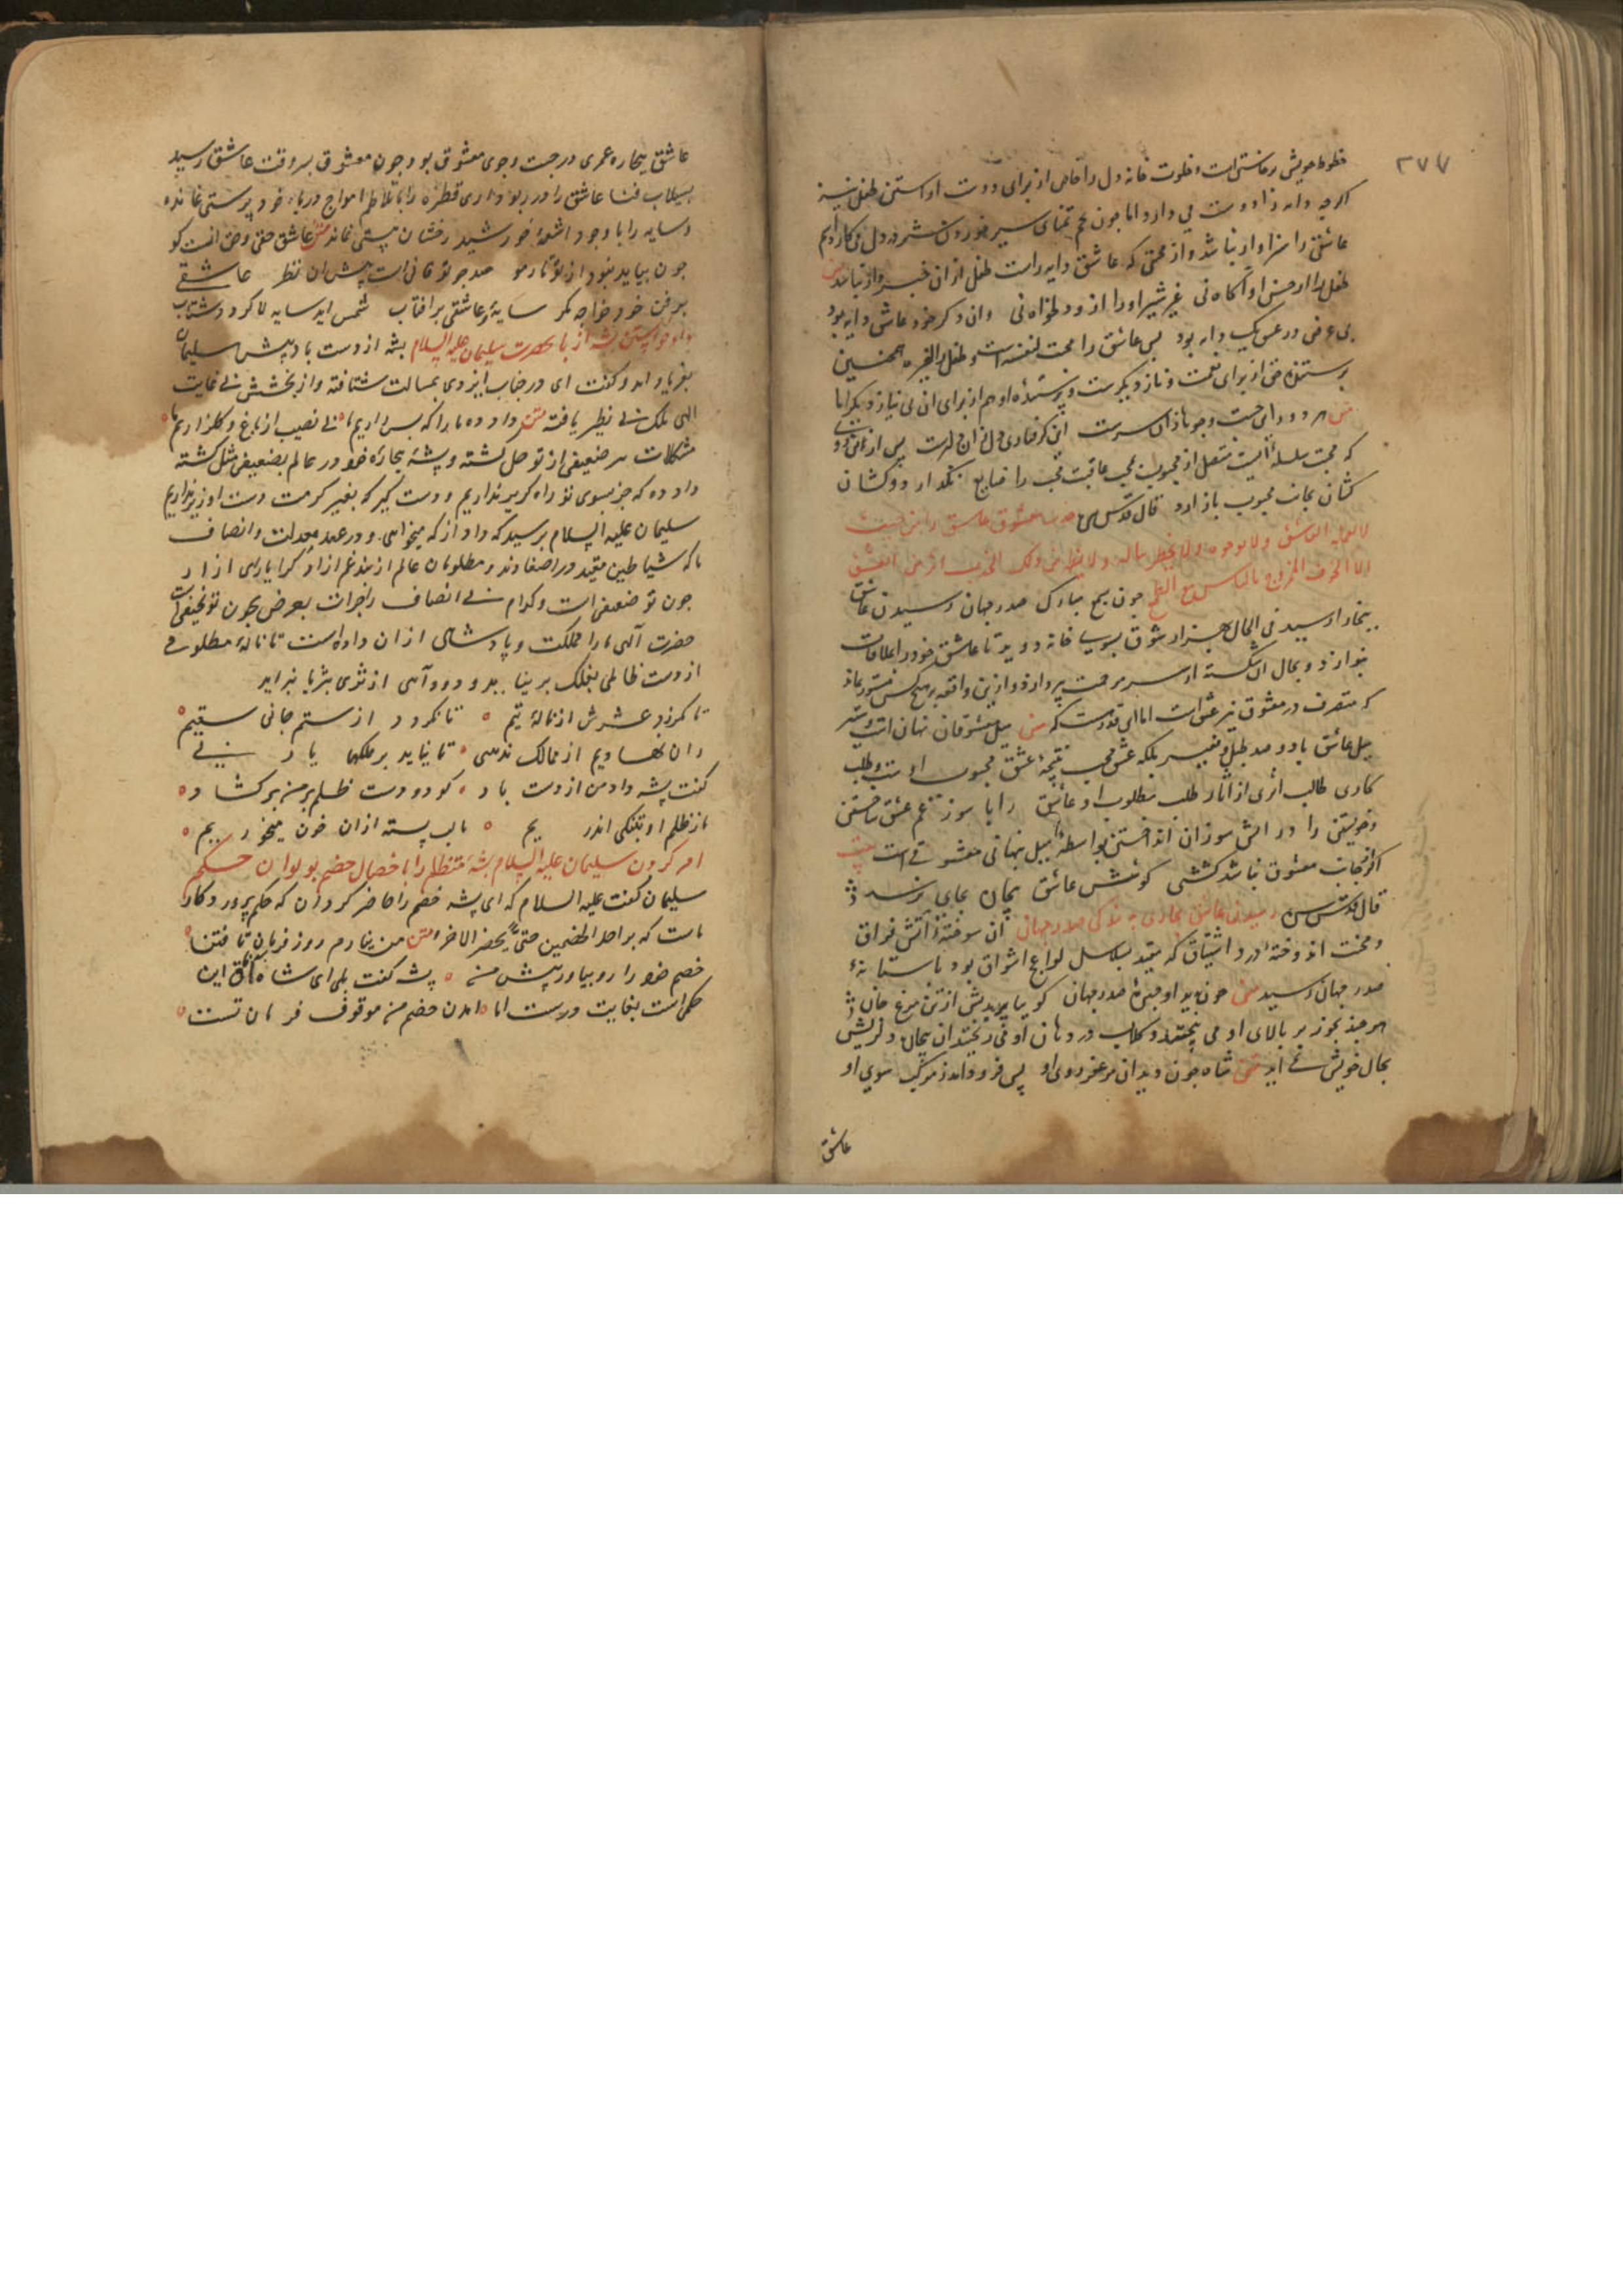 ۳۷۷
خطوط خویش
اکرچه دایه را دوست می دارد اما چون
عاشقی را سزاوار نباشد و از محبتی که عاشق دایه راست طفل از ان خبر
طفل را از حسن او آکاه نی غیر شیر او را ازو دلخواه نی وان دکر خود عاشق دایه بود
بی غرض در عشق یک رایه بود پس عاشق را محبت لنفسه است و طفل را لغیره همچنین
از برای نعمت و ناز دیکرست و پرستنده او هم از برای ان بی نیاز دیکر اما
هر دو را این جست و جوها زان سرست این کرفتاری دل زان دلبرست پس از
که محبت سلسله ایست متصل از محبوب بمحب عاقبت محب را ضایع نکذارد و کشان
کشان بجانب محبوب باز ارد قال قدس سره جذب معشوق عاشق را من حیث
لا یعلمه العاشق و لا یرجوه و لا یخطر بباله و لا یظهر من ذلک الجذب اثر فی العاشق
الا الخوف الممزوج بالیاس مع الطلب چون بسمع مبارک صدر جهان رسیدن عاشق
ببخارا رسید فی الحال بهزار شوق بسوی خانه دوید تا عاشق خود را ملاقات
بنوازد و بحال ان شکسته
که متصرف در معشوق نیز عشق است اما این قدر هست که متن میل معشوقان نهان است و ستیر
میل عاشق با دو صد طبل و نفیر بلکه عشق محب نتیجه عشق محبوب است و طلب
کاری طالب اثری از اثار طلب مطلوب او عاشق را با سوز غم عشق ساختن
و خویشتن را در اتش سوزان انداختن بواسطه میل نهانی معشوقی است بیت
اکر از جانب معشوق نباشد کششی کوشش عاشق بیچاره بجایی نرسد
قال قدس سره رسیدن عاشق بخاری به نزدیکی صدر جهان ان سوخته آتش فراق
و محنت اندوخته درد اشتیاق که مقید بسلاسل لواعج اشواق بود باستانه
صدر جهان رسید متن چون بدید او چهره صدر جهان کوییا پریدش از تن مرغ جان
هرچند بخور بر بالای او می پختند و کلاب در دهان او می ریختند ان بیحال دلریش
بحال خویش نمی امد متن شاه چون دید ان مزعفر روی او پس فرود امد ز مرکب سوی او
عاشق
عاشق بیچاره عمری در جست و جوی معشوق بود چون معشوق بسروقت عاشق رسید
بسیلاب فنا عاشق را در ربود اری قطره را با تلاطم امواج دریا خود پرستی نمانده
و سایه را با وجود اشعه خورشید رخشان هستی نماند متن عاشق حقی و حق انست کو
چون بیاید نبود از تو تا ر مو صد چو تو فانی است پیش ان نظر عاشقی
بر نفی خود خواجه مکر سایه و عاشقی بر افتاب شمس اید سایه لا کردد شتاب
داد خواستن پشه از باد بحضرت سلیمان علیه السلام پشه از دست باد پیش سلیمان
بفریاد امد و کفت ای در جناب ایزدی برسالت شتافته و از بخشش بی غایت
الهی ملک بی نظیر یافته متن داد ده ما را که بس زاریم ما بی نصیب از باغ و کلزاریم ما
مشکلات هر ضعیفی از تو حل کشته و پشه بیچاره خود در عالم بضعیفی مثل کشته
داد ده که جز بسوی تو راه کریز نداریم و دست کیر که بغیر کرمت دست اویز نداریم
سلیمان علیه السلام پرسید که داد از که میخواهی و در عهد معدلت و انصاف
ما که شیاطین مقید در اصفادند و مظلومان عالم از بند غم ازاد کرا یارای ازار
چون تو ضعیفی است و کدام بی انصاف را جرات بعرض چون تو نحیفی است
حضرت آلهی ما را مملکت و پادشاهی از ان داده است تا ناله مظلومی
از دست ظالمی بفلک بر نیاید و دود آهی از ثری بثریا نبراید
تا نلرزد عرش از ناله یتیم ٥ تا نکردد از ستم جانی سقیم
زان نهادیم از ممالک مذهبی ٥ تا نیاید بر فلکها یا ربی
کفت پشه داد من از دست باد ٥ کو دو دست ظلم بر من برکشاد ٥
ما ز ظلم او بتنکی اندریم ٥ با لب بسته ازان خون میخوریم ٥
امر کردن سلیمان علیه السلام پشه متظلم را باحضار خصم بدیوان حکم
سلیمان کفت علیه السلام که ای پشه خصم را حاضر کردان که حکم پروردکار
ماست که بر احد الخصمین حتی یحضر الاخر متن من نیارم رو ز فرمان تافتن
خصم خود را رو بیاور پیش من ٥ پشه کفت بلی ای شاه این
حکم است بغایت درست اما امدن خصم من موقوف فرمان تست ٥